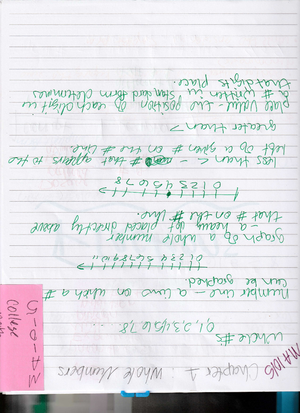 Chapter 1: Whole Numbers
Whole #s
0,1,2,3,4,5,6,7,8 ...
Number line - a line on which a #
can be graphed
0 1 2 3 4 5 6 7 8 9 10 11
Graph of a whole number
- a heavy dot placed directly above
that # on the # line.
0 1 2 3 4 5 6 7 8
less than < - # that appears to the
left of a given # on the # line.
greater than >
place value - the position of each digit in
a # written in standard form determines
that digits place.
College